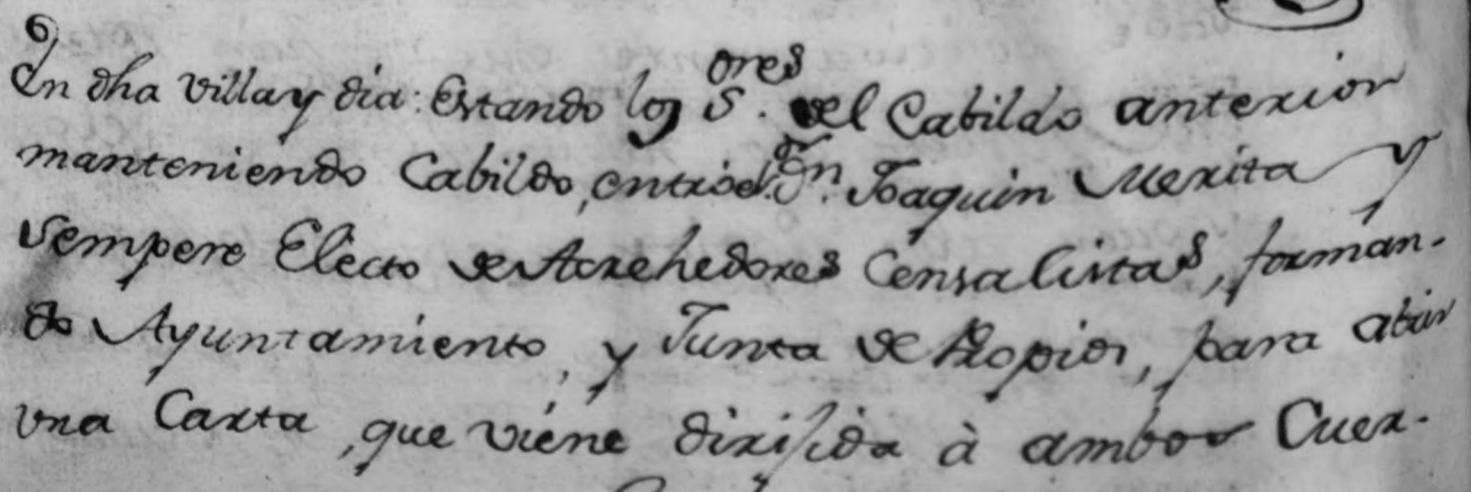 En dha villa y dia: Estando los S.ores del Cabildo anterior
manteniendo Cabildo, entró el Dn. Joaquin Merita y
Sempere Electo de Acrehedores Censalistas, forman-
do Ayuntamiento, y Junta de Propios, para abrir
una Carta, que viene dirijida à ambos Cuer-